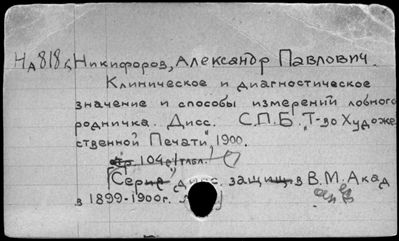 На818 Никифоров, Александр Павлович.
Клиническое и диагностическое
значение и способы измерений лобного
родничка. Дисс. С.П.Б. "Т-во Художе
ственной Печати", 1900.
стр 104 с, 1 табл.
[Серия дисс. защищ. в В.М.Акад
в 1899-1900г.